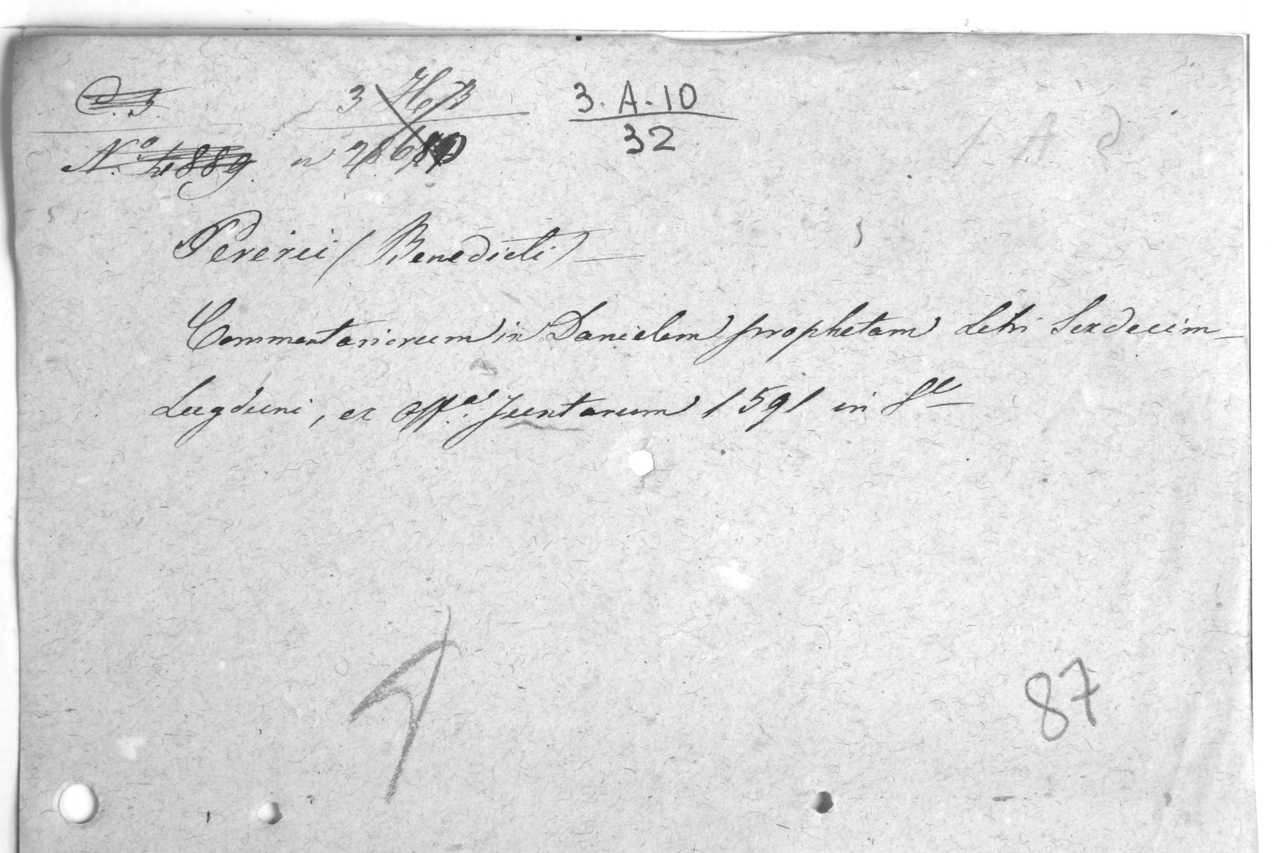 C. 3. 3 3. A-10
Nº 4889 32
Pererii (Benedicti) —
Commentariorum in Danielem prophetam Libri Sexdecim —
Lugduni, ex Offª Juntarum 1591 in
87